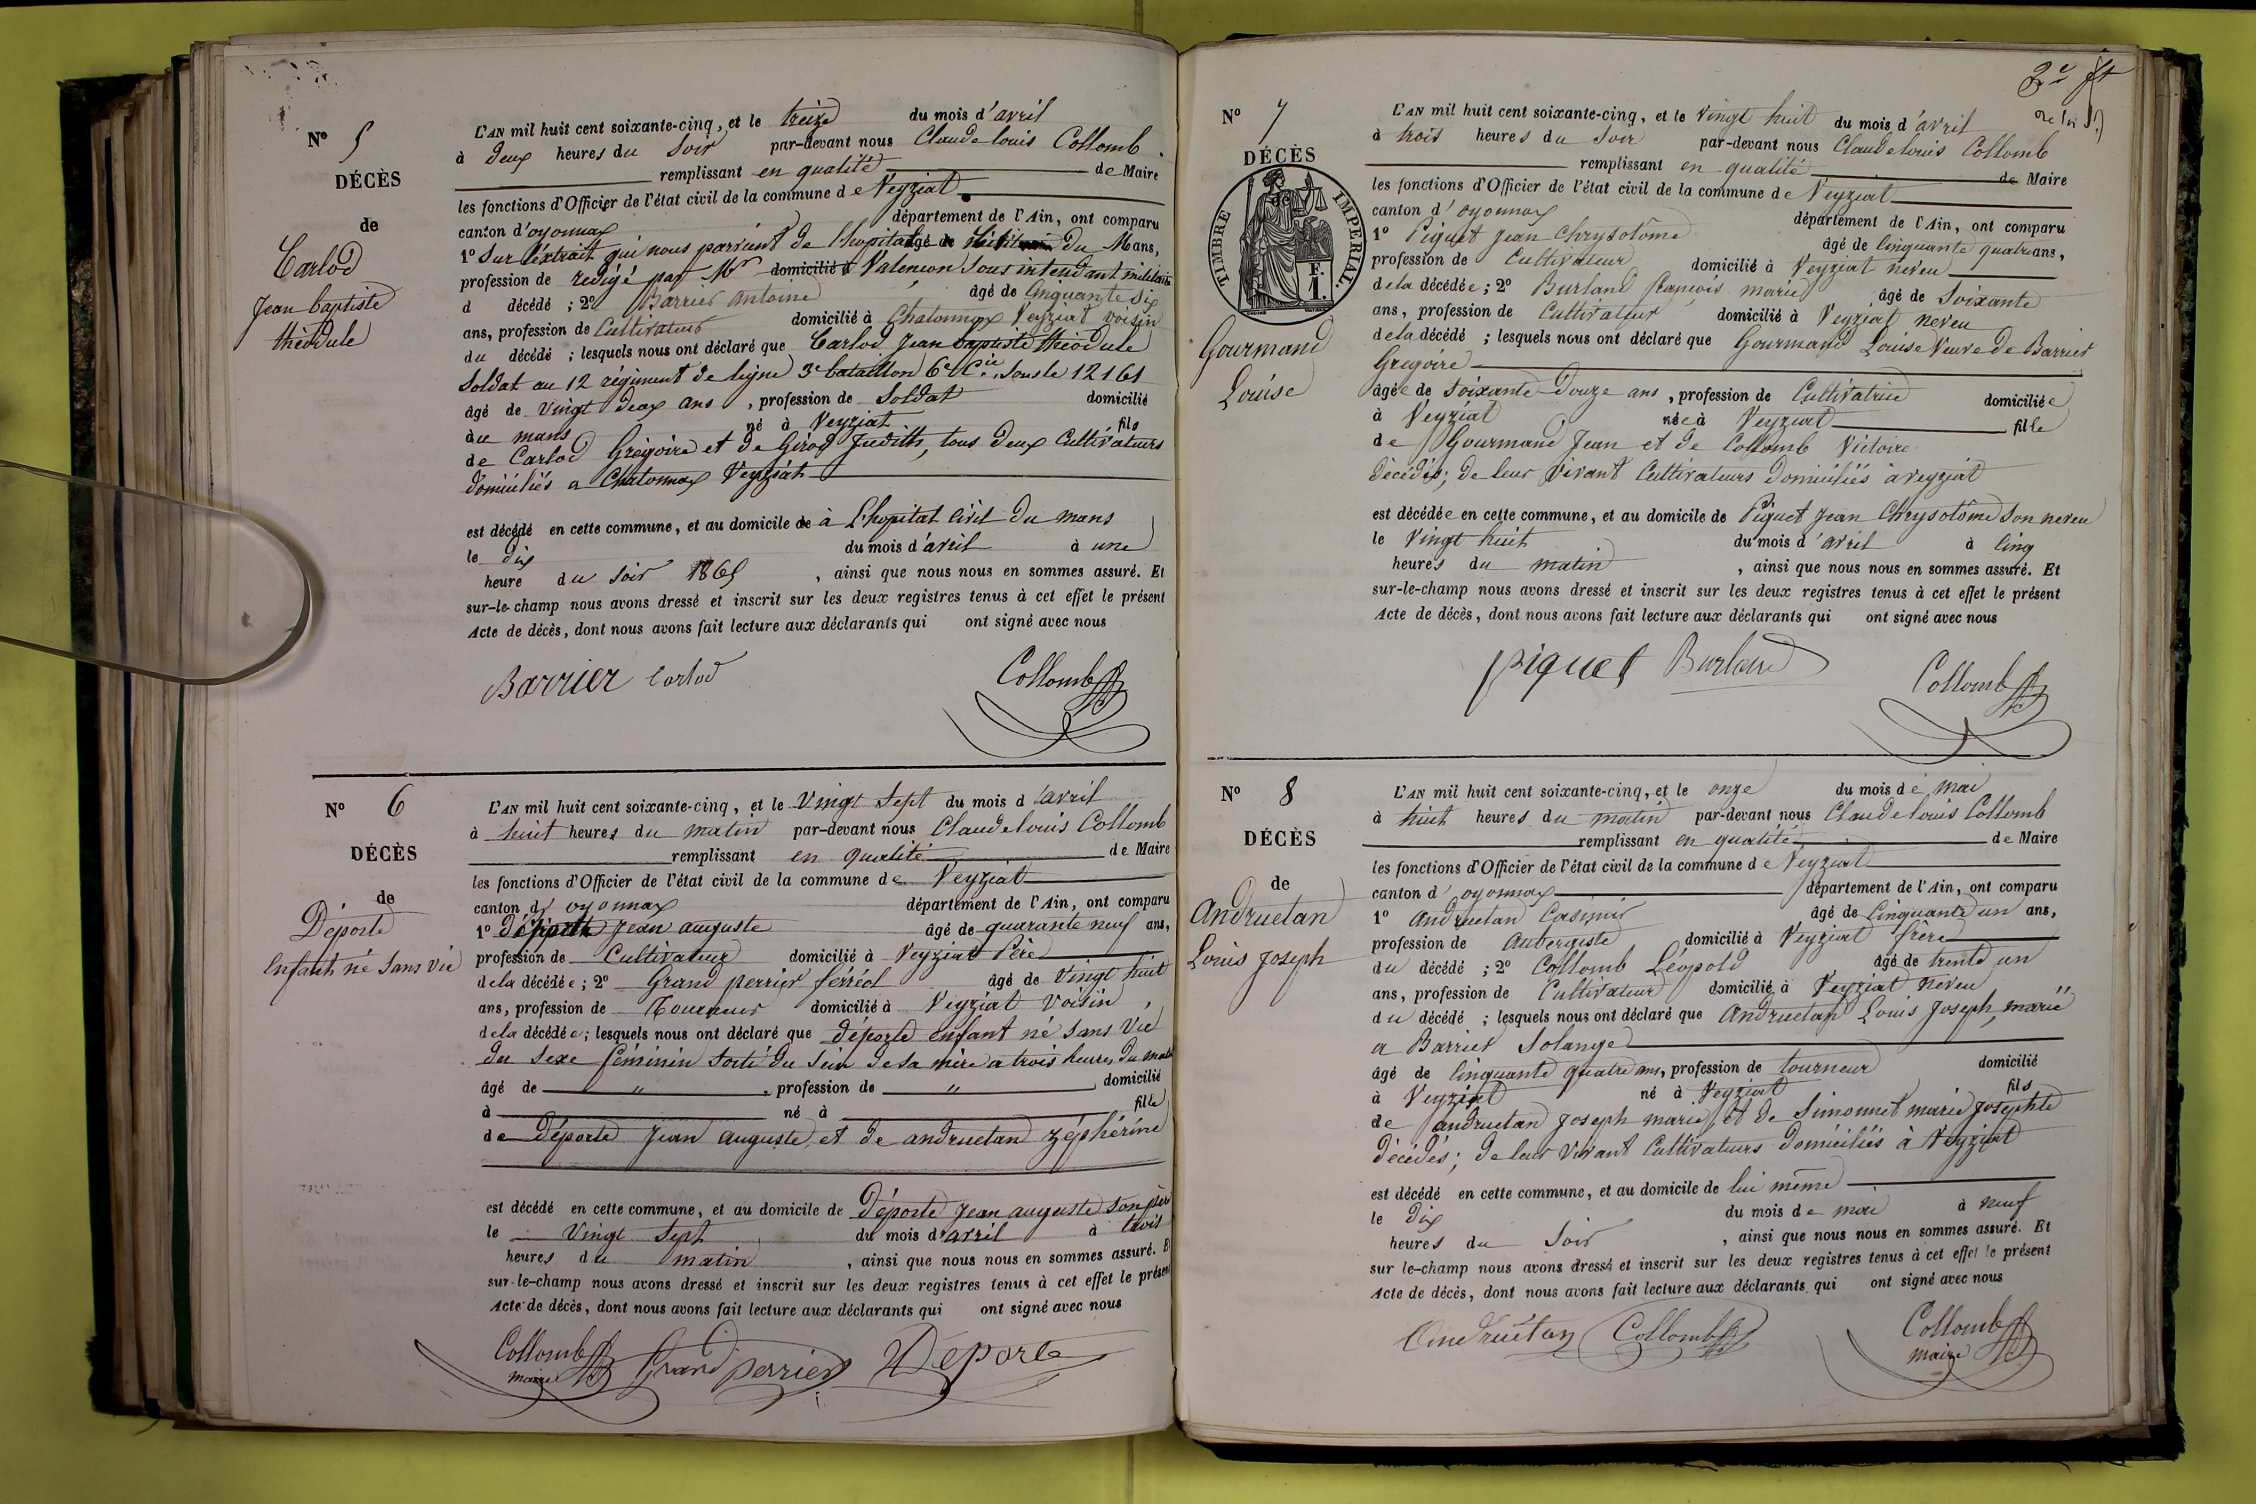 Nº 5
DÉCÈS
de
Carlod
Jean baptiste
théodule
L'AN mil huit cent soixante-cinq, et le treize du mois d'avril
à deux heures du soir par-devant nous Claude louis Collomb
remplissant en qualité de Maire
les fonctions d'Officier de l'état civil de la commune de Veyziat
canton d'oyonnax département de l'Ain, ont comparu
1º Sur l'extrait qui nous parvient de l'hopital âgé de du Mans,
profession de redigé par Mr domicilié à Valencon Sous intendant militaire
d décédé ; 2º Barrier antoine âgé de Cinquante six
ans, profession de Cultivateur domicilié à Chatonnax Veyziat voisin
du décédé ; lesquels nous ont déclaré que Carlod Jean baptiste théodule
Soldat au 12 régiment de ligne 3e bataillon 6e Cie. sous le 12161
âgé de vingt deux ans , profession de Soldat domicilié
au mans né à Veyziat fils
de Carlod Grégoire et de Girod Judith, tous deux Cultivateurs
domiciliés a Chatonnax Veyziat
est décédé en cette commune, et au domicile de à L'hopital Civil du mans
le dix du mois d'avril à une
heure du soir 1865 , ainsi que nous nous en sommes assuré. Et
sur-le-champ nous avons dressé et inscrit sur les deux registres tenus à cet effet le présent
Acte de décès, dont nous avons fait lecture aux déclarants qui ont signé avec nous
Barrier Carlod Collomb
Nº 6
DÉCÈS
de
Déporte
Enfant né sans vie
L'AN mil huit cent soixante-cinq, et le Vingt Sept du mois d'avril
à huit heures du matin par-devant nous Claude louis Collomb
remplissant en qualité de Maire
les fonctions d'Officier de l'état civil de la commune de Veyziat
canton d'oyonnax département de l'Ain, ont comparu
1º Déporte Jean auguste âgé de quarante neuf ans,
profession de Cultivateur domicilié à Veyziat Père
de la décédée ; 2º Grand perrier férréol âgé de vingt huit
ans, profession de Tourneur domicilié à Veyziat Voisin ,
de la décédée ; lesquels nous ont déclaré que Déporte enfant né sans vie
du sexe féminin sorti du sein de sa mère a trois heures du matin
âgé de " , profession de " , domicilié
à né à fille
de Déporte Jean auguste et de andruetan zéphérine
est décédé en cette commune, et au domicile de Déporte Jean auguste son père
le Vingt Sept du mois d'avril à trois
heures du matin , ainsi que nous nous en sommes assuré. Et
sur-le-champ nous avons dressé et inscrit sur les deux registres tenus à cet effet le présent
Acte de décès, dont nous avons fait lecture aux déclarants qui ont signé avec nous
Collomb Grand perrier Déporte
maire
Nº 7
DÉCÈS
de
TIMBRE IMPÉRIAL.
F.
1.
Gourmand
Louise
L'AN mil huit cent soixante-cinq, et le vingt huit du mois d'avril
à trois heures du soir par-devant nous Claude louis Collomb
remplissant en qualité de Maire
les fonctions d'Officier de l'état civil de la commune de Veyziat
canton d'oyonnax département de l'Ain, ont comparu
1º Piquet Jean Chrysotôme âgé de Cinquante quatre ans,
profession de Cultivateur domicilié à Veyziat neveu
de la décédée ; 2º Burland françois marie âgé de Soixante
ans, profession de Cultivateur domicilié à Veyziat neveu
de la décédé ; lesquels nous ont déclaré que Gourmand Louise Veuve de Barrier
Grégoire
âgée de Soixante Douze ans , profession de Cultivatrice domiciliée
à Veyziat née à Veyziat fille
de Gourmand Jean et de Collomb Victoire
Décédés; de leur vivant Cultivateurs Domiciliés à veyziat
est décédée en cette commune, et au domicile de Piquet Jean Chrysotôme son neveu
le Vingt huit du mois d'avril à Cinq
heures du matin , ainsi que nous nous en sommes assuré. Et
sur-le-champ nous avons dressé et inscrit sur les deux registres tenus à cet effet le présent
Acte de décès, dont nous avons fait lecture aux déclarants qui ont signé avec nous
piquet Burland Collomb
Nº 8
DÉCÈS
de
Andruetan
Louis Joseph
L'AN mil huit cent soixante-cinq, et le onze du mois de mai
à huit heures du matin par-devant nous Claude louis Collomb
remplissant en qualité de Maire
les fonctions d'Officier de l'état civil de la commune de Veyziat
canton d'oyonnax département de l'Ain, ont comparu
1º Andruetan Casimir âgé de Cinquante un ans,
profession de Aubergiste domicilié à Veyziat frère
du décédé ; 2º Collomb Léopold âgé de trente un
ans, profession de Cultivateur domicilié à Veyziat neveu
du décédé ; lesquels nous ont déclaré que Andruetan Louis Joseph, marié
a Barrier Solange
âgé de Cinquante quatre ans, profession de tourneur domicilié
à Veyziat né à Veyziat fils
de andruetan Joseph marie et de Simonnet marie Josephte
Décédés; de leur vivant Cultivateurs Domiciliés à Veyziat
est décédé en cette commune, et au domicile de lui même
le Dix du mois de mai à neuf
heures du Soir , ainsi que nous nous en sommes assuré. Et
sur le-champ nous avons dressé et inscrit sur les deux registres tenus à cet effet le présent
Acte de décès, dont nous avons fait lecture aux déclarants qui ont signé avec nous
Andruétan Collomb Collomb
maire